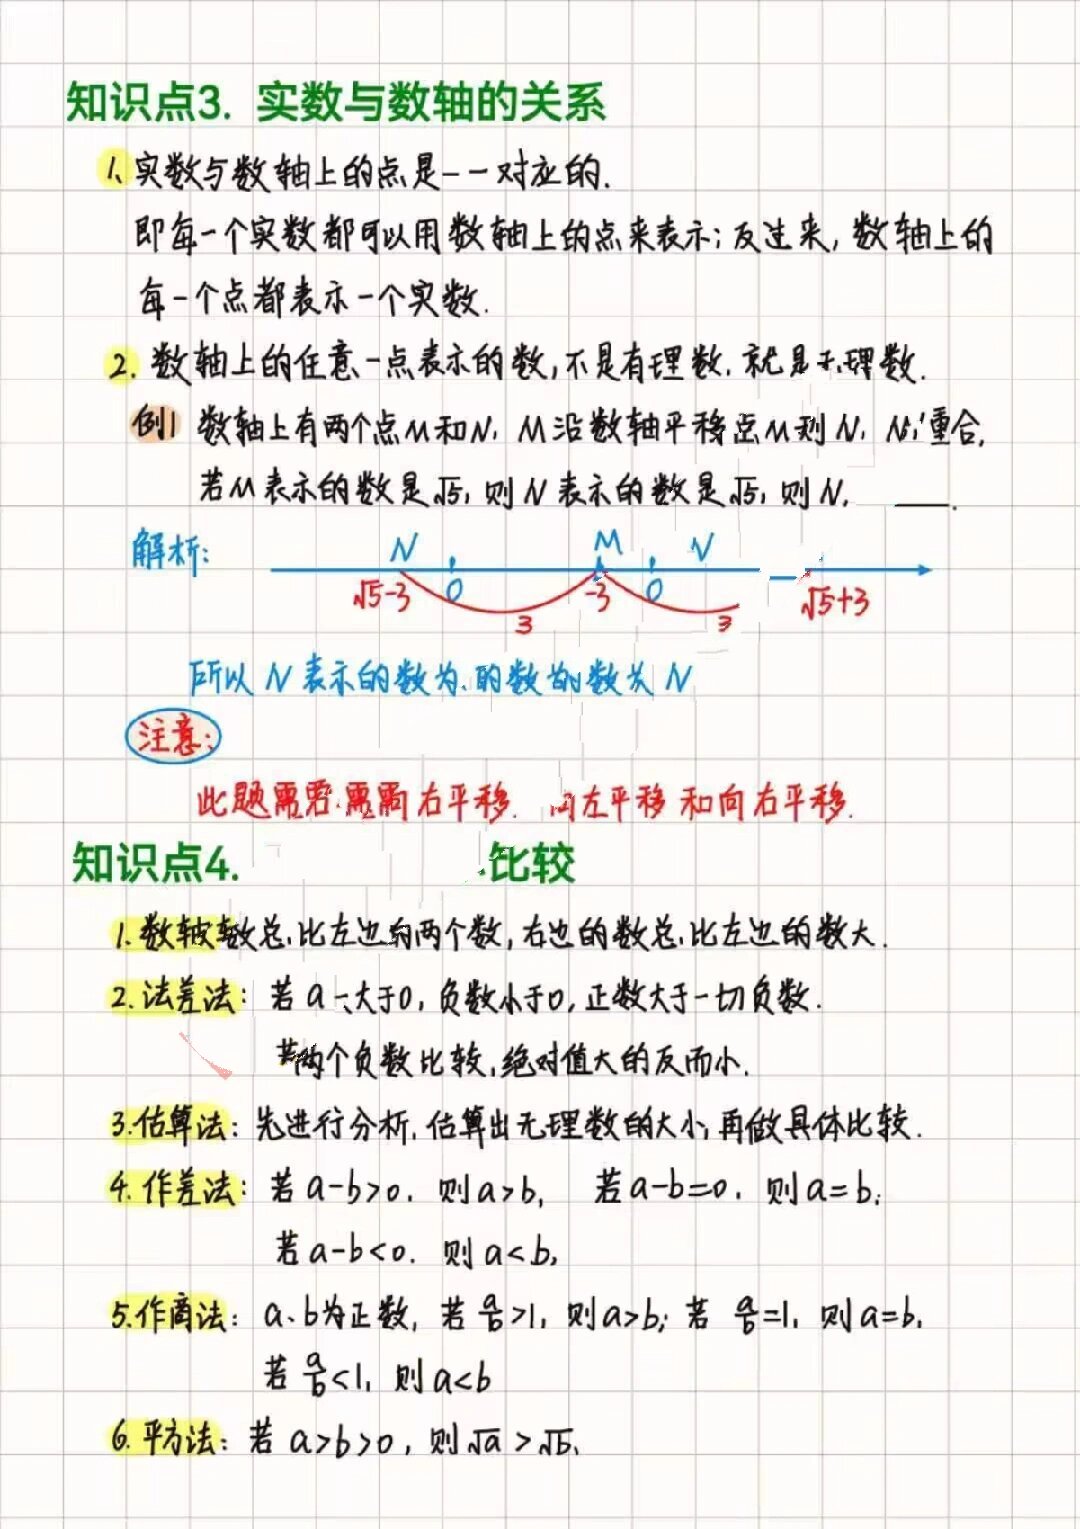 知识点3. 实数与数轴的关系
1、实数与数轴上的点是一一对应的.
即每一个实数都可以用数轴上的点来表示；反过来, 数轴上的
每一个点都表示一个实数.
2. 数轴上的任意一点表示的数, 不是有理数, 就是无理数.
例1 数轴上有两个点M和N, M沿数轴平移点M则N, 重合.
若M表示的数是√5, 则N表示的数是√5, 则N. ____.
解析: N M N
0 0
√5-3 -3 √5+3
3 3
所以N表示的数为、的数 数 N
注意:
此题需 需 右平移. 左平移和向右平移.
知识点4. 比较
1. 数轴 数总比左边 两个数, 右边的数总比左边的数大.
2. 法差法: 若a 大于0, 负数小于0, 正数大于一切负数.
若两个负数比较, 绝对值大的反而小.
3. 估算法: 先进行分析, 估算出无理数的大小, 再做具体比较.
4. 作差法: 若a-b>0, 则a>b, 若a-b=0, 则a=b;
若a-b<0. 则a<b,
5. 作商法: a、b为正数, 若a/b>1, 则a>b; 若a/b=1, 则a=b,
若a/b<1, 则a<b
6. 平方法: 若a>b>0, 则√a>√b、